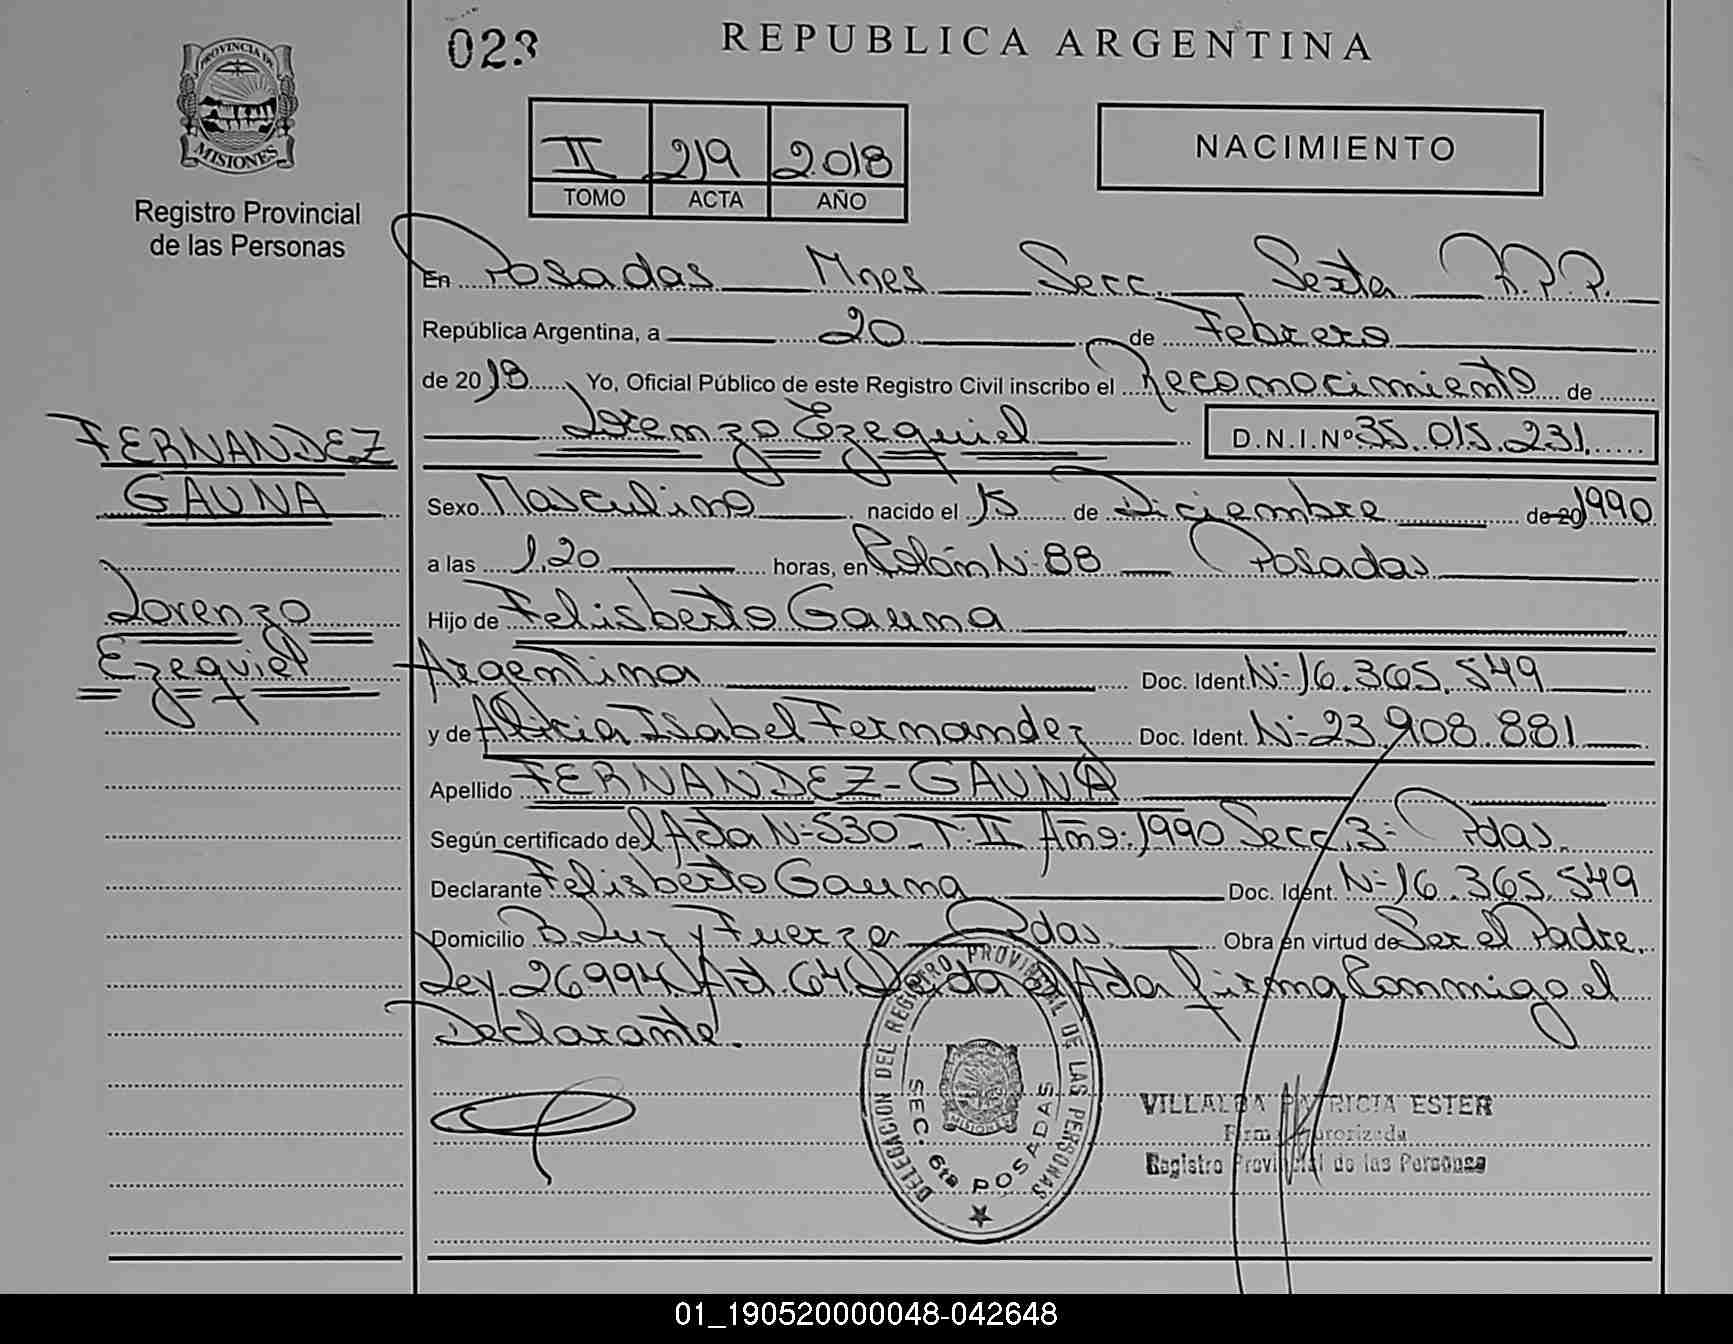 023
REPUBLICA ARGENTINA
PROVINCIA DE
MISIONES
Registro Provincial
de las Personas
II 219 2.018
TOMO ACTA AÑO
NACIMIENTO
En Posadas Mnes Secc. Sexta R.P.P.
República Argentina, a 20 de Febrero
de 2018 Yo, Oficial Público de este Registro Civil inscribo el Reconocimiento de
Lorenzo Ezequiel D.N.I.Nº 35.015.231
FERNANDEZ
GAUNA
Lorenzo
Ezequiel
Sexo Masculino nacido el 15 de Diciembre de 20 1990
a las 1,20 horas, en Colón Nº 88 Posadas
Hijo de Felisberto Gauna
Argentina Doc. Ident. Nº 16.365.549
y de Alicia Isabel Fernandez Doc. Ident. Nº 23.908.881
Apellido FERNANDEZ-GAUNA
Según certificado del Acta Nº 530 T: II Año: 1990 Secc. 3º Pdas.
Declarante Felisberto Gauna Doc. Ident. Nº 16.365.549
Domicilio B. Luz y Fuerza Pdas. Obra en virtud de Ser el Padre.
Ley 26994 Art. 64. Leida el Acta firma Conmigo el
Declarante.
DELEGACION DEL REGISTRO PROVINCIAL DE LAS PERSONAS
SEC. 6ta POSADAS
MISIONES
VILLALBA PATRICIA ESTER
Firma Autorizada
Registro Provincial de las Personas
01_190520000048-042648